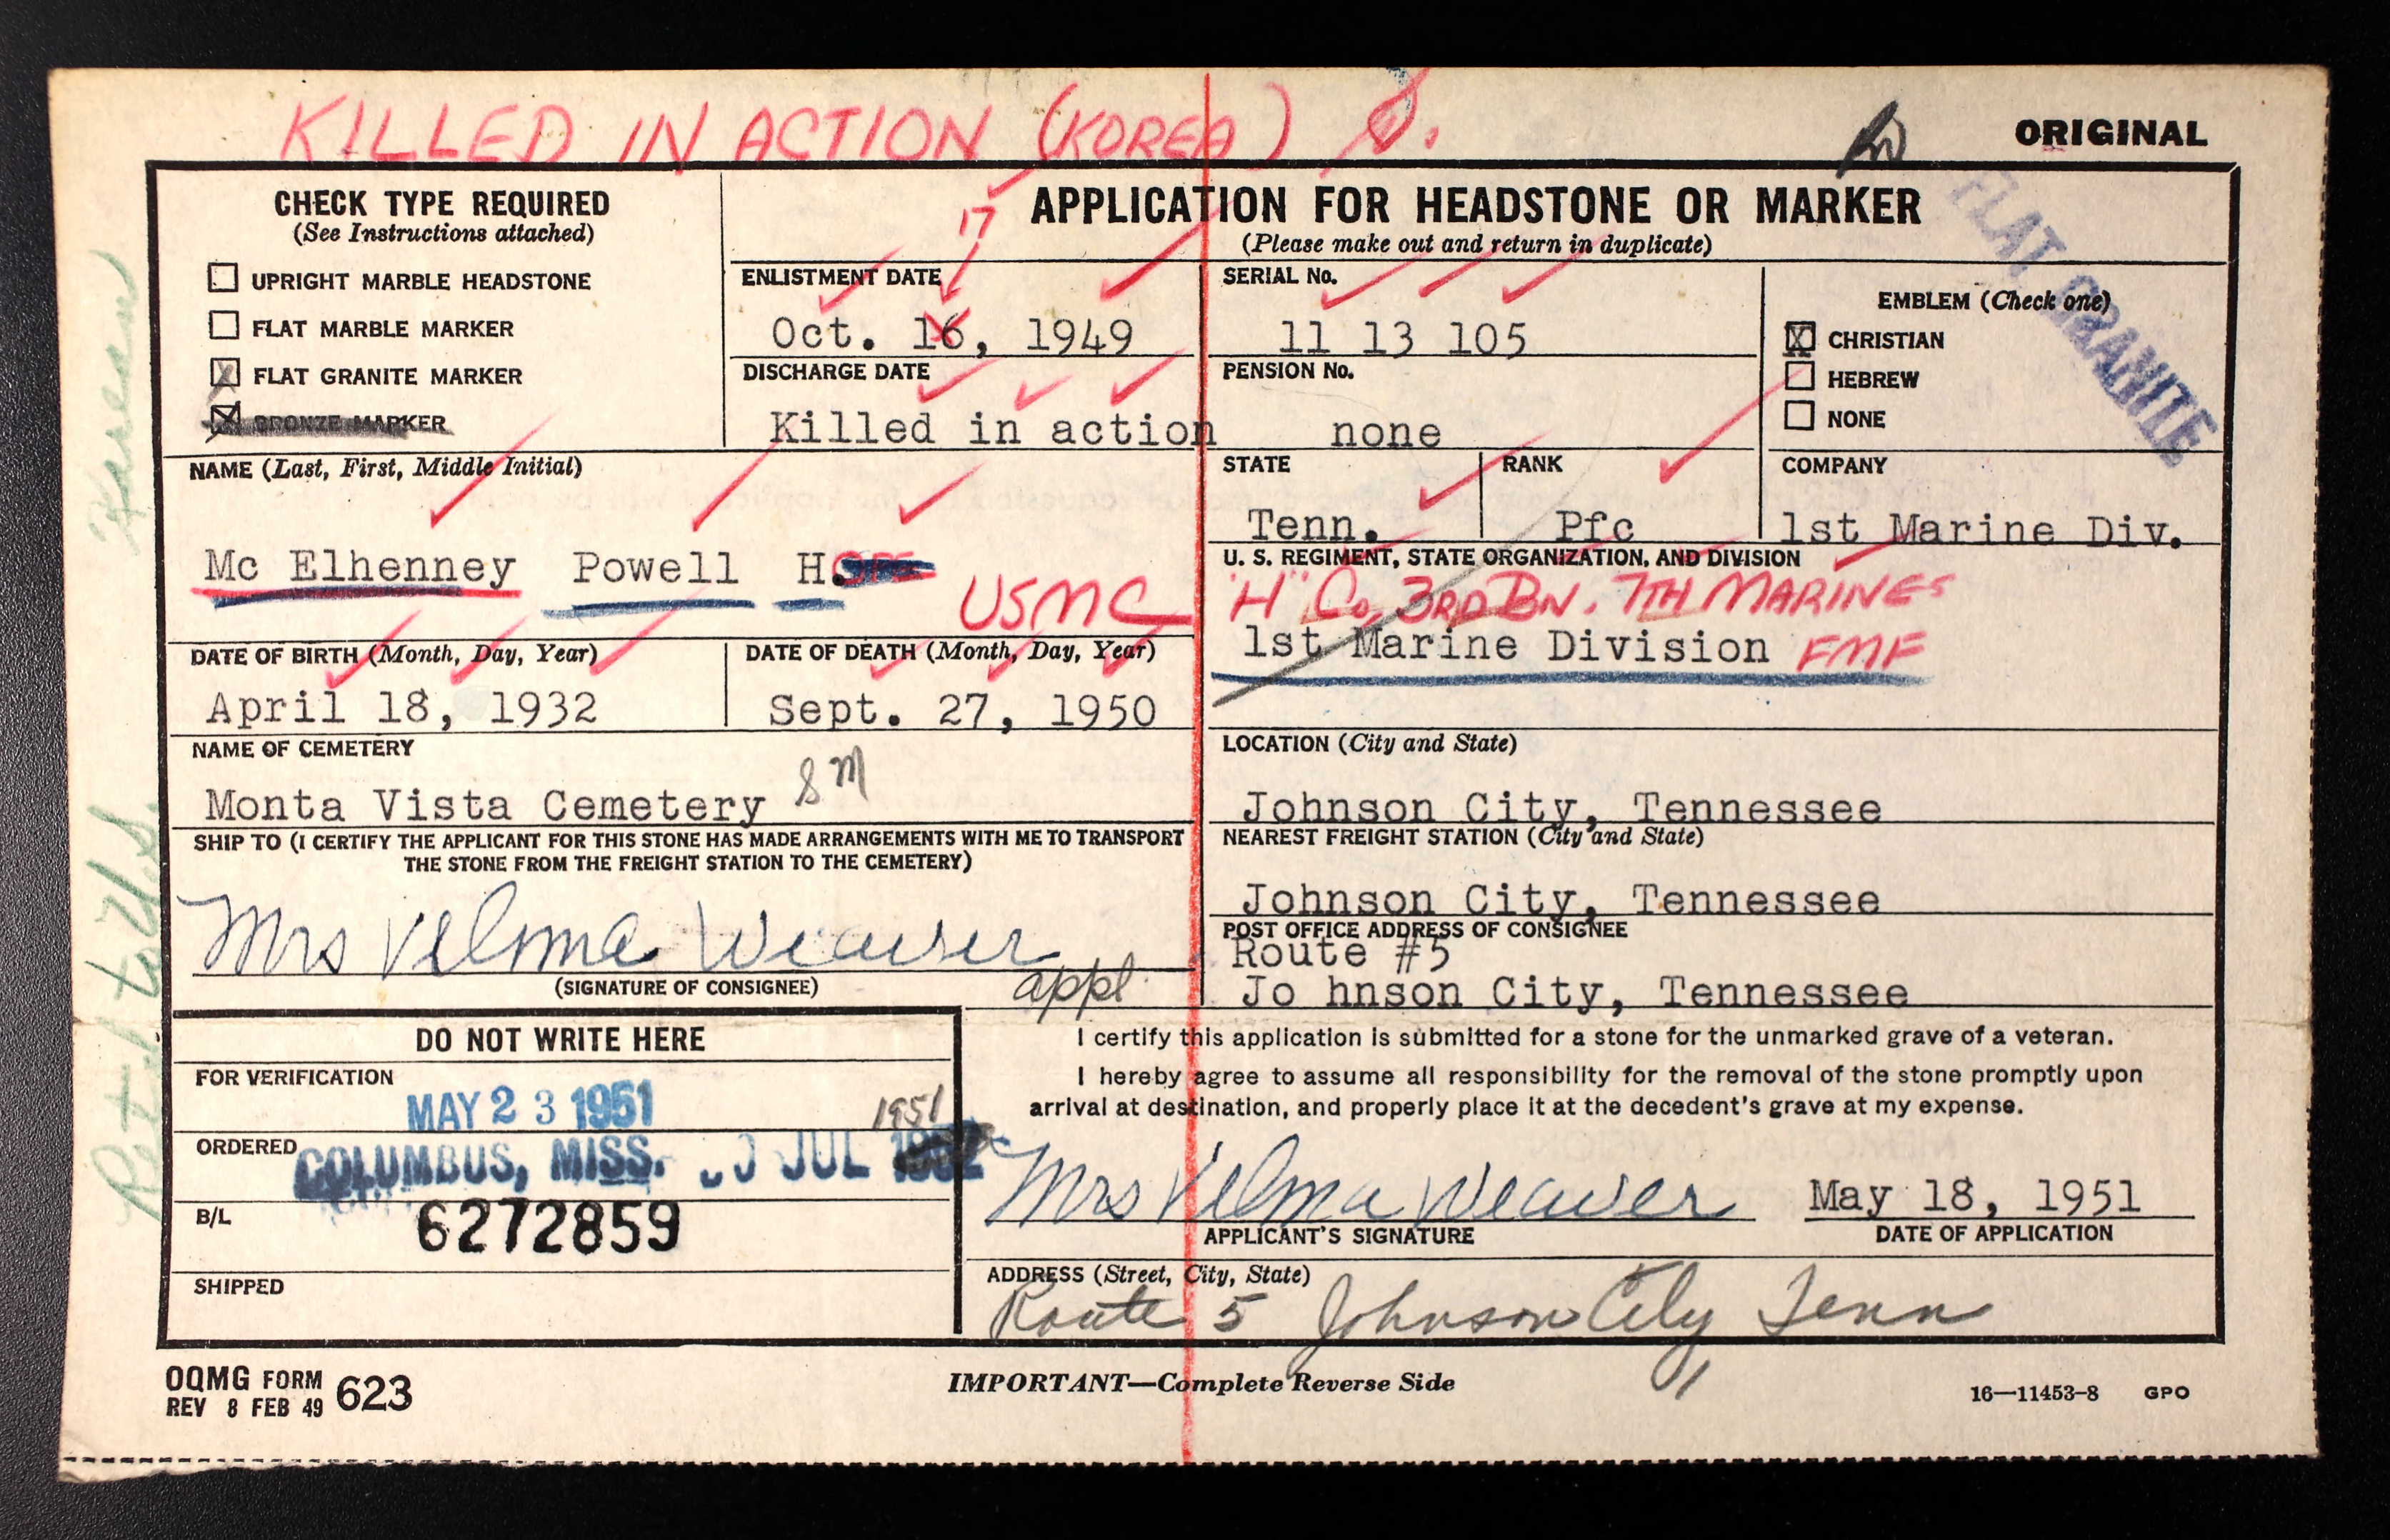 KILLED IN ACTION (KOREA)
ORIGINAL
CHECK TYPE REQUIRED
(See Instructions attached)
UPRIGHT MARBLE HEADSTONE
FLAT MARBLE MARKER
X FLAT GRANITE MARKER
X BRONZE MARKER
APPLICATION FOR HEADSTONE OR MARKER
(Please make out and return in duplicate)
FLAT GRANITE
17
ENLISTMENT DATE
Oct. 16, 1949
SERIAL No.
11 13 105
EMBLEM (Check one)
X CHRISTIAN
HEBREW
NONE
DISCHARGE DATE
Killed in action
PENSION No.
none
NAME (Last, First, Middle Initial)
Mc Elhenney Powell H.
USMC
STATE
Tenn.
RANK
Pfc
COMPANY
1st Marine Div.
U. S. REGIMENT, STATE ORGANIZATION, AND DIVISION
"H" Co, 3RD BN. 7TH MARINES
1st Marine Division FMF
DATE OF BIRTH (Month, Day, Year)
April 18, 1932
DATE OF DEATH (Month, Day, Year)
Sept. 27, 1950
NAME OF CEMETERY
Monta Vista Cemetery
LOCATION (City and State)
Johnson City, Tennessee
SHIP TO (I CERTIFY THE APPLICANT FOR THIS STONE HAS MADE ARRANGEMENTS WITH ME TO TRANSPORT
THE STONE FROM THE FREIGHT STATION TO THE CEMETERY)
Mrs Velma Weaver
(SIGNATURE OF CONSIGNEE)
appl
NEAREST FREIGHT STATION (City and State)
Johnson City, Tennessee
POST OFFICE ADDRESS OF CONSIGNEE
Route #5
Jo hnson City, Tennessee
DO NOT WRITE HERE
FOR VERIFICATION
MAY 23 1951
1951
ORDERED
COLUMBUS, MISS. JUL
B/L
6272859
SHIPPED
I certify this application is submitted for a stone for the unmarked grave of a veteran.
I hereby agree to assume all responsibility for the removal of the stone promptly upon
arrival at destination, and properly place it at the decedent's grave at my expense.
Mrs Velma Weaver
APPLICANT'S SIGNATURE
May 18, 1951
DATE OF APPLICATION
ADDRESS (Street, City, State)
Route 5 Johnson City Tenn
OQMG FORM 623
REV 8 FEB 49
IMPORTANT—Complete Reverse Side
16—11453-8 GPO
Ret'd to U.S.
Korean